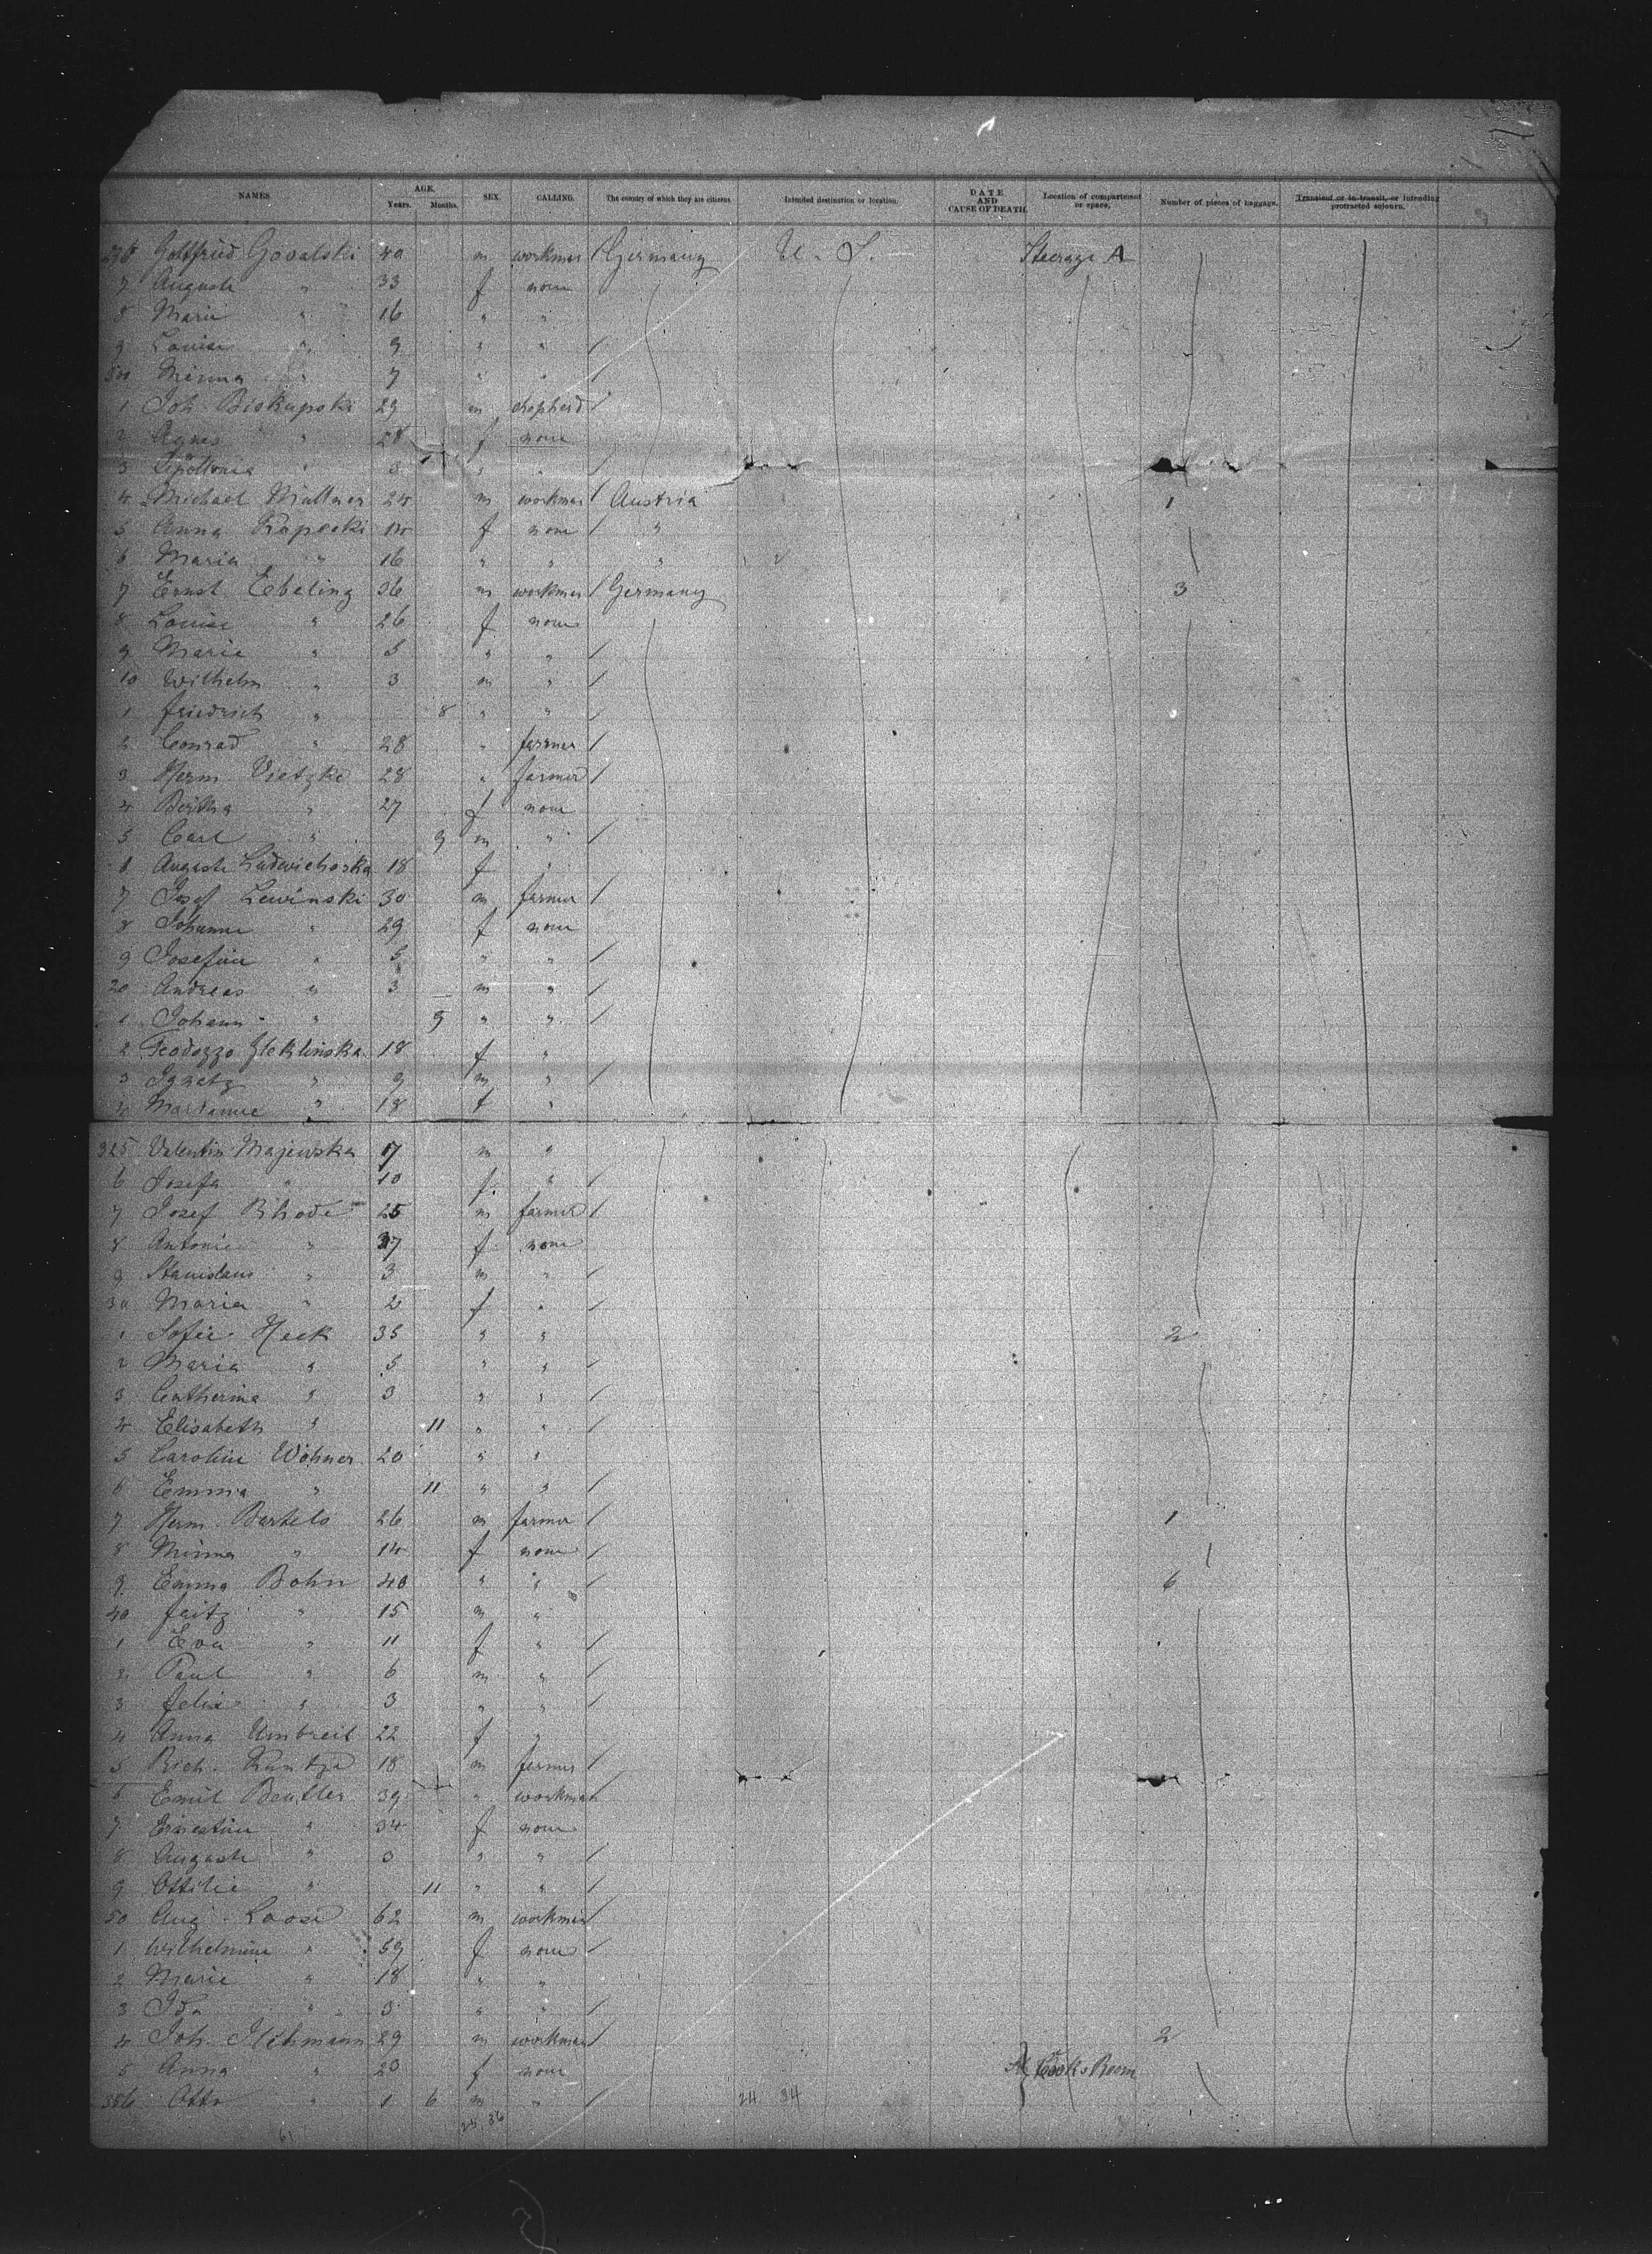 NAMES. AGE. Years. Months. SEX. CALLING. The country of which they are citizens. Intended destination or location. DATE AND CAUSE OF DEATH. Location of compartment or space. Number of pieces of baggage. Transient or in transit, or intending protracted sojourn.
296 Gottfried Govalski 40 m workman / Germany U. S. Steerage A
7 Auguste " 33 f none
8 Marie " 16 " "
9 Louise " 9 " " /
300 Minna " 7 " " /
1 Joh. Biskupski 29 m shepherd /
2 Agnes " 28 f none
3 Apollonia " 3 " " /
4 Michael Müllner 24 m workman / Austria 1
5 Anna 14 f none / "
6 Maria " 16 " " "
7 Ernst Ebeling 36 m workman / Germany 3
8 Louise " 26 f none
9 Marie " 5 " " /
10 Wilhelm " 3 m " /
1 Friedrich " 8 " " /
2 Conrad " 28 " farmer /
3 Herm. Vietzke 28 " farmer /
4 Bertha " 27 f none
5 Carl " 9 m " /
6 Auguste Ludwichoska 18 f "
7 Josef Lewinski 30 m farmer /
8 Johanne " 29 f none
9 Josefine " 5 " " /
20 Andreas " 3 m " /
1 Johann " 9 " " /
2 18 f "
3 Ignatz " 9 m " /
4 Marianne " 18 f "
325 Valentin Majewska 17 m "
6 Josefa " 10 f " /
7 Josef Rhode 25 m farmer /
8 Antonie " 27 f none
9 Stanislaus " 3 m " /
30 Maria " 2 f " /
1 Sofie Heck 35 " " 2
2 Maria " 5 " " /
3 Catherina " 3 " " /
4 Elisabeth " 11 " " /
5 Caroline Wöhner 20 " "
6 Emma " 11 " " /
7 Herm. Bartels 26 m farmer / 1
8 Minna " 14 f none /
9 Emma Bohn 40 " " / 6
40 Fritz " 15 m "
1 Eva " 11 f " /
2 Paul " 6 m " /
3 Felix " 3 " " /
4 Anna Umbreit 22 f "
5 Rich. 18 m farmer /
6 Emil Beutler 39 " workman
7 Ernestine " 34 f none
8 Auguste " 3 " " /
9 Ottilie " 11 " " /
50 Aug. Loose 62 m workman /
1 Wilhelmine " 59 f none /
2 Marie " 18 " "
3 Ida " 3 " " /
4 Joh. 29 m workman / 2
5 Anna " 23 f none Cooks Room
356 Otto " 1 6 m " / 24 34
61 25, 36